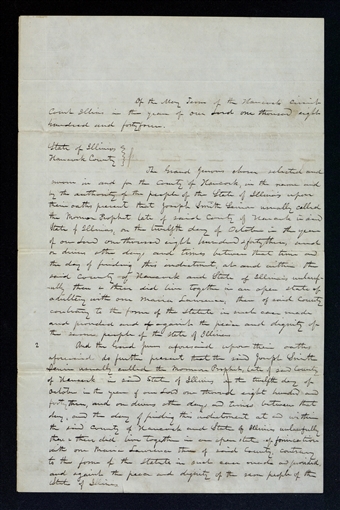 Of the May Term of the Hancock Circuit
Court Illinois in the year of our Lord one thousand eight
hundred and forty four.
State of Illinois
Hancock County
The Grand Jurors chosen selected and
sworn in and for the County of Hancock, in the name and
by the authority of the people of the State of Illinois upon
their oaths present that Joseph Smith Senior usually called
the Mormon Prophet late of said County of Hancock in said
State of Illinois, on the twelfth day of October in the year
of our Lord one thousand eight hundred & forty three, and
on divers other days and times between that time and
the day of finding this indictment at and within the
said County of Hancock and State of Illinois unlawf-
ully then & there did live together in an open state of
adultery with one Maria Lawrence, then of said County
contrary to the form of the statute in such case made
and provided and against the peace and dignity of
the same people of the State of Illinois.
2 And the Jurors aforesaid upon their oaths
aforesaid do further present that the said Joseph Smith
Senior usually called the Mormon Prophet, late of said County
of Hancock in said State of Illinois on the twelfth day of
October in the year of our Lord one thousand eight hundred and
forty three, and on divers other days and times between that
day, and the day of finding this indictment at and within
the said County of Hancock and State of Illinois unlawfully
then & there did live together in an open state of fornication
with one Maria Lawrence then of said County contrary
to the form of the statute in such case made and provided
and against the peace and dignity of the same people of the
State of Illinois